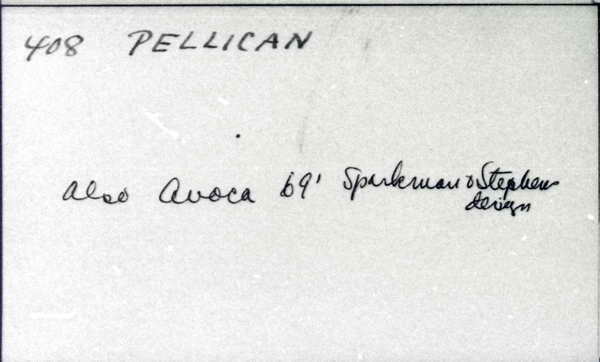 408 PELLICAN
also Avoca 69' Sparkman & Stephens
design